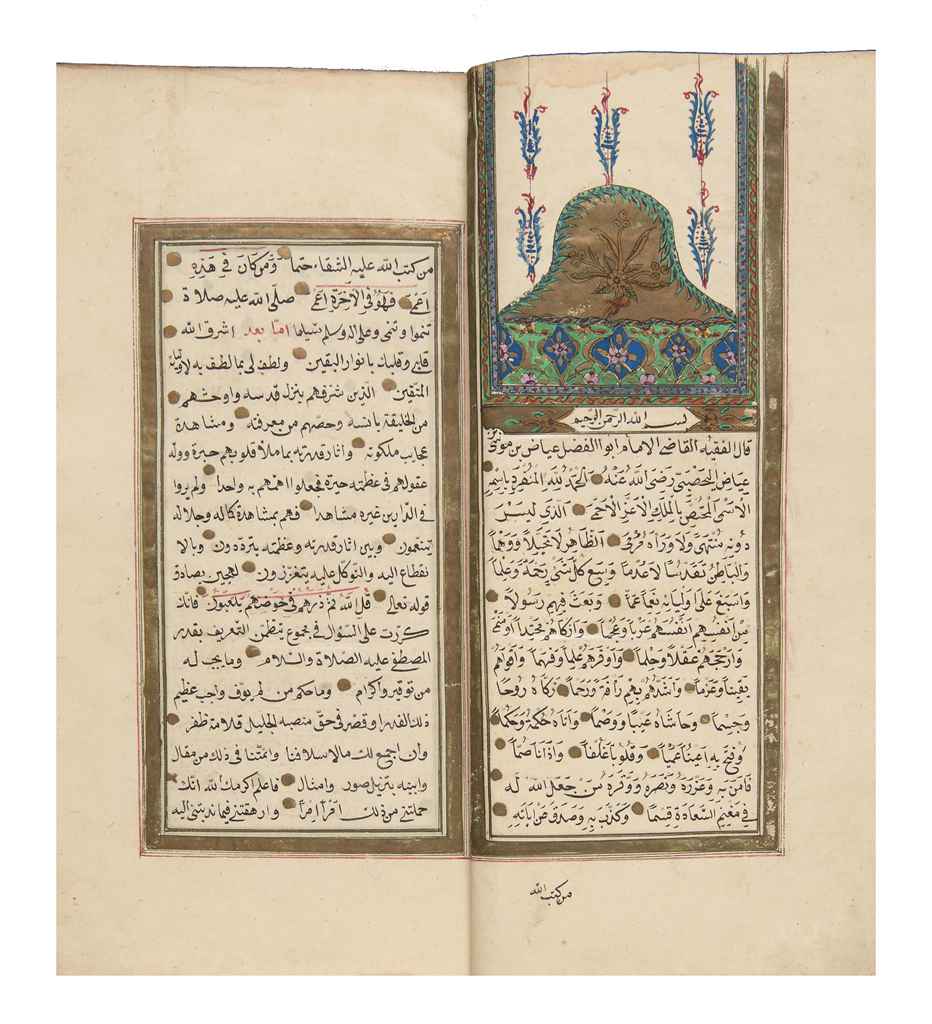 بسم الله الرحمن الرحيم
قال الفقيه القاضى الامام ابو الفضل عياض بن موسى بن
عياض اليحصبى رَضِىَ اللهُ عَنْهُ الحَمْدُ لله المُنْفَرِدِ باسمه
الاسمى المختص بالملك الاعز الاحمى الذى ليس
دونه منتهى ولا وراءه مرمى الظاهر لا تخيلا ووهما
والباطن تقدسا لا عدما وسع كل شئ رحمة وعلما
واسبغ على اوليائه نعما عما وبعث فيهم رسولا
من انفسهم انفسهم عربا وعجما وازكاهم محتدا ومنمى
وارجحهم عقلا وحلما واوفرهم علما وفهما واقواهم
يقينا وعزما واشدهم بهم رأفة ورحما زكاه روحا
وجسما وحاشاه عيبا ووصما واتاه حكمة وحكما
وفتح به اعينا عميا وقلوبا غلفا واذانا صما
فامن به وعزره ونصره ووقره من جعل الله له
فى مغنم السعادة قسما وكذب به وصدف عن اياته
من كتب الله
من كتب الله عليه الشقاء حتما ومن كان فى هذه
اعمى فهو فى الآخرة اعمى صلى الله عليه صلاة
تنموا وتنمى وعلى اله وسلم تسليما اما بعد اشرق الله
قلبى وقلبك بانوار اليقين ولطف لى بما لطف به لاوليائه
المتقين الذين شرفهم بنزل قدسه واوحشهم
من الخليقة بانسه وخصهم من معرفته ومشاهدة
عجايب ملكوته واثار قدرته بما ملأ قلوبهم حبرة ووله
عقولهم فى عظمته حيرة فجعلوا همهم به واحدا ولم يروا
فى الدارين غيره مشاهدا فهم بمشاهدة كماله وجلاله
يتنعمون وبين اثار قدرته وعظمته يترددون وبالا
نقطاع اليه والتوكل عليه يتعززون لهجين بصادق
قوله تعالى قل الله ثم ذرهم فى خوضهم يلعبون فانك
كررت على السؤال فى مجموع يتضمن التعريف بقدر
المصطفى عليه الصلاة والسلام وما يجب له
من توقير واكرام وما حكم من لم يوف واجب عظيم
ذلك القدر او قصر فى حق منصبه الجليل قلامة ظفر
وان اجمع لك ما لاسلافنا وائمتنا فى ذلك من مقال
وابينه بتنزيل صور وامثال فاعلم اكرمك الله انك
حملتنى من ذلك امرا امرا وارهقتنى فيما ندبتنى اليه